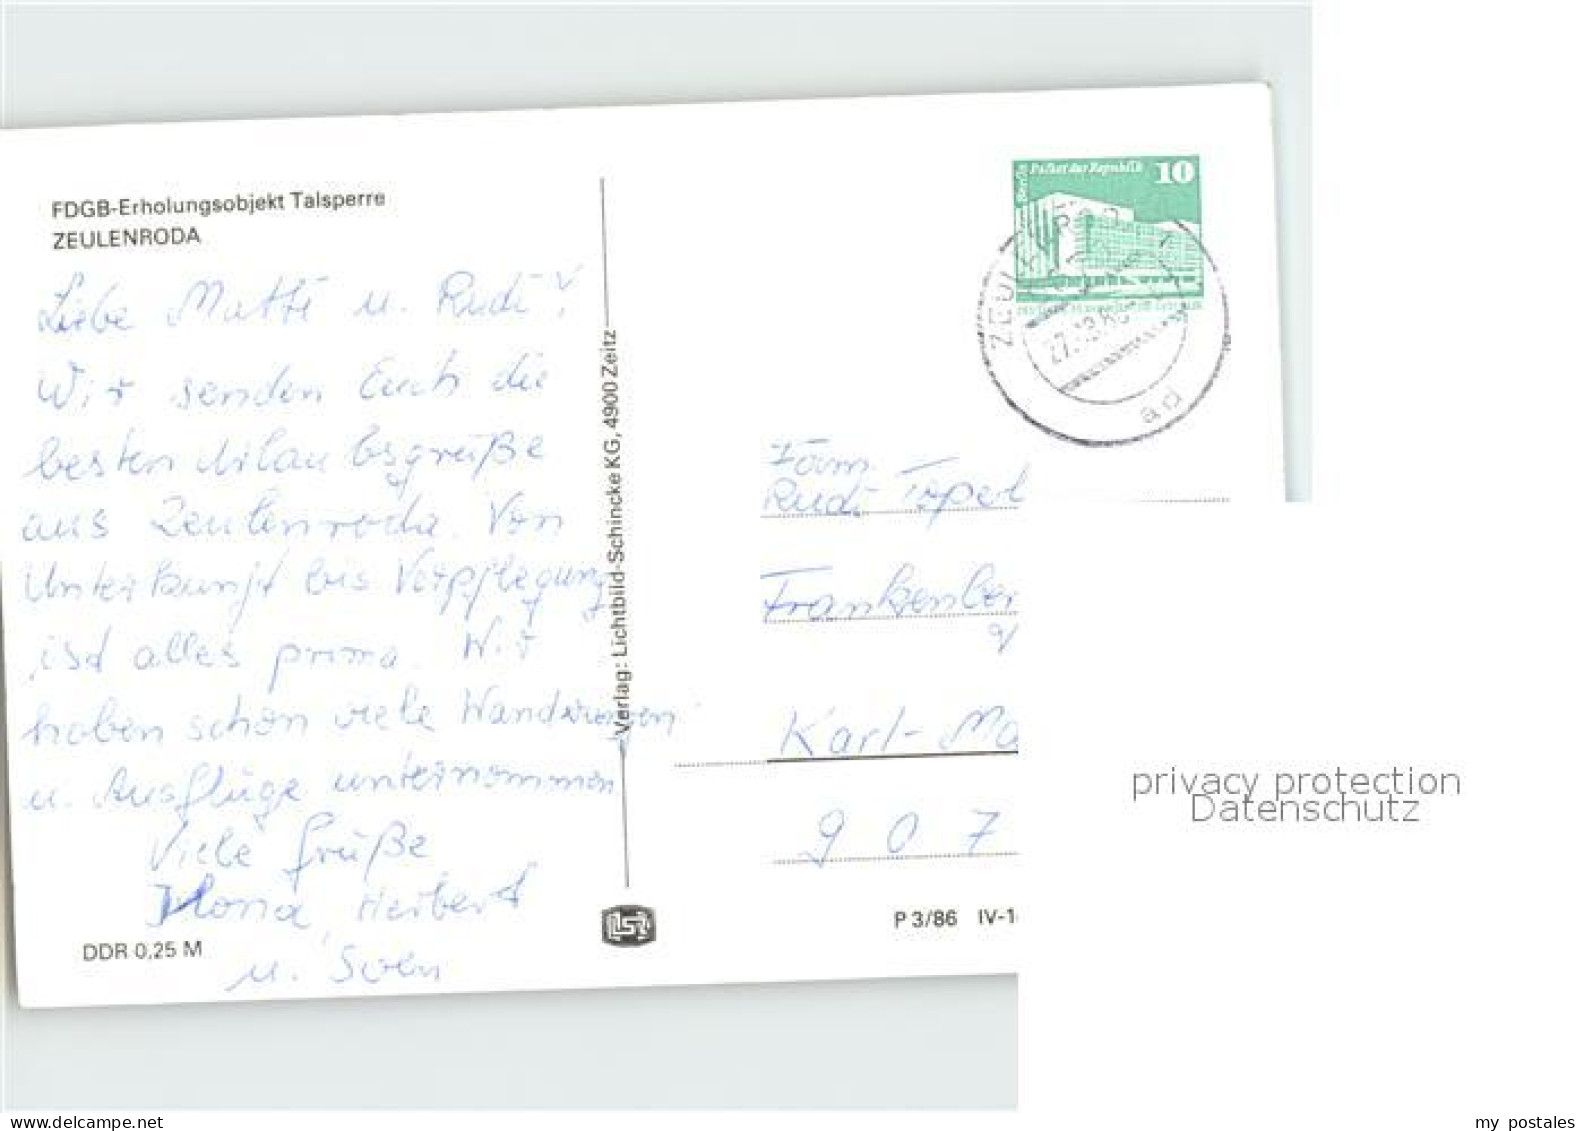 FDGB-Erholungsobjekt Talsperre
ZEULENRODA
Liebe Mutti u. Rudi!
Wir senden Euch die
besten Urlaubsgrüße
aus Zeulenroda. Von
Unterkunft bis Verpflegung
ist alles prima. Wir
haben schon viele Wanderungen
u. Ausflüge unternommen
Viele Grüße
Ilona, Herbert
u. Sven
DDR 0,25 M
Verlag: Lichtbild-Schincke KG, 4900 Zeitz
Berlin Palast der Republik 10
ad
Fam.
Rudi
Frankenber
Karl-Ma
9 0 7
P 3/86 IV-1
privacy protection
Datenschutz
www.delcampe.net
my postales